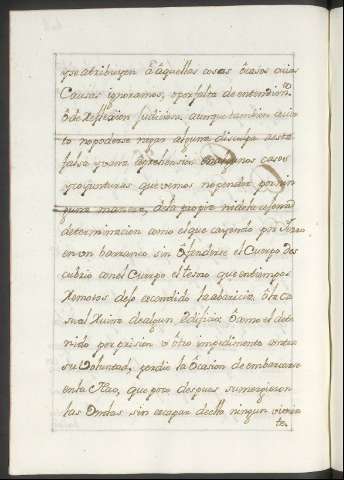 y se atribuyen â âquellas cosas ôcasos cuias
Causas ignoramos, opor falta de entendim.to
ô de Reflexion Judiciosa, aunque tambien es cier
to nopoderse negar alguna disculpa a esta
falsa y vana aprehension en algunos casos
y coyunturas que vemos no pender por nin
guna manera, de la propia ni de la
determinacion como el que cayendo por
en un barranco sin ôfenderse el Cuerpo des
cubrio con el Cuerpo el tesoro que en tiempos
Remotos dejo escondido la abaricia, ô la ca
sual Ruina de algun Edificio, ô como el dete
nido por prision ô ôtro impedimento contra
su Voluntad, perdio la Ôcasion de embarcarse
en la Nao, que poco despues sumergieron
las Ondas sin escapar de ella ningun vivien
te.